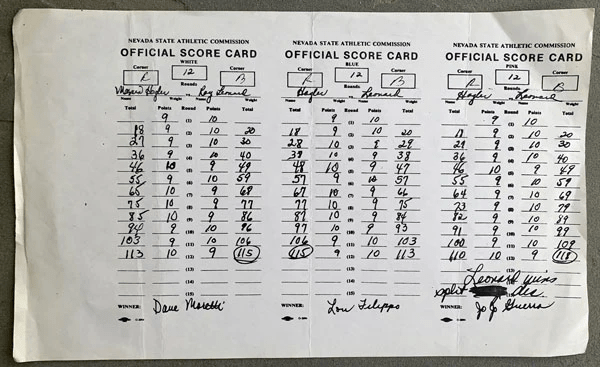 NEVADA STATE ATHLETIC COMMISSION
OFFICIAL SCORE CARD
WHITE
Corner 12 Corner
R Rounds B
Hagler vs. Ray Leonard
Name Weight Name Weight
Total Points Round Points Total
9 (1) 10
18 9 (2) 10 20
27 9 (3) 10 30
36 9 (4) 10 40
46 10 (5) 9 49
55 9 (6) 10 59
65 10 (7) 9 68
75 10 (8) 9 77
85 10 (9) 9 86
94 9 (10) 10 96
103 9 (11) 10 106
113 10 (12) 9 115
(13)
(14)
(15)
WINNER:
Dave Moretti
NEVADA STATE ATHLETIC COMMISSION
OFFICIAL SCORE CARD
BLUE
Corner 12 Corner
R Rounds B
Hagler vs. Leonard
Name Weight Name Weight
Total Points Round Points Total
9 (1) 10
18 9 (2) 10 20
28 10 (3) 9 29
38 10 (4) 9 38
48 10 (5) 9 47
57 9 (6) 10 57
67 10 (7) 9 66
77 10 (8) 9 75
87 10 (9) 9 84
97 10 (10) 9 93
106 9 (11) 10 103
115 9 (12) 10 113
(13)
(14)
(15)
WINNER:
Lou Filippo
NEVADA STATE ATHLETIC COMMISSION
OFFICIAL SCORE CARD
PINK
Corner 12 Corner
R Rounds B
Hagler vs. Leonard
Name Weight Name Weight
Total Points Round Points Total
9 (1) 10
18 9 (2) 10 20
27 9 (3) 10 30
36 9 (4) 10 40
46 10 (5) 9 49
55 9 (6) 10 59
64 9 (7) 10 69
73 9 (8) 10 79
82 9 (9) 10 89
91 9 (10) 10 99
100 9 (11) 10 109
110 10 (12) 9 118
(13)
Leonard wins
split dec.
WINNER:
Jo Jo Guerra